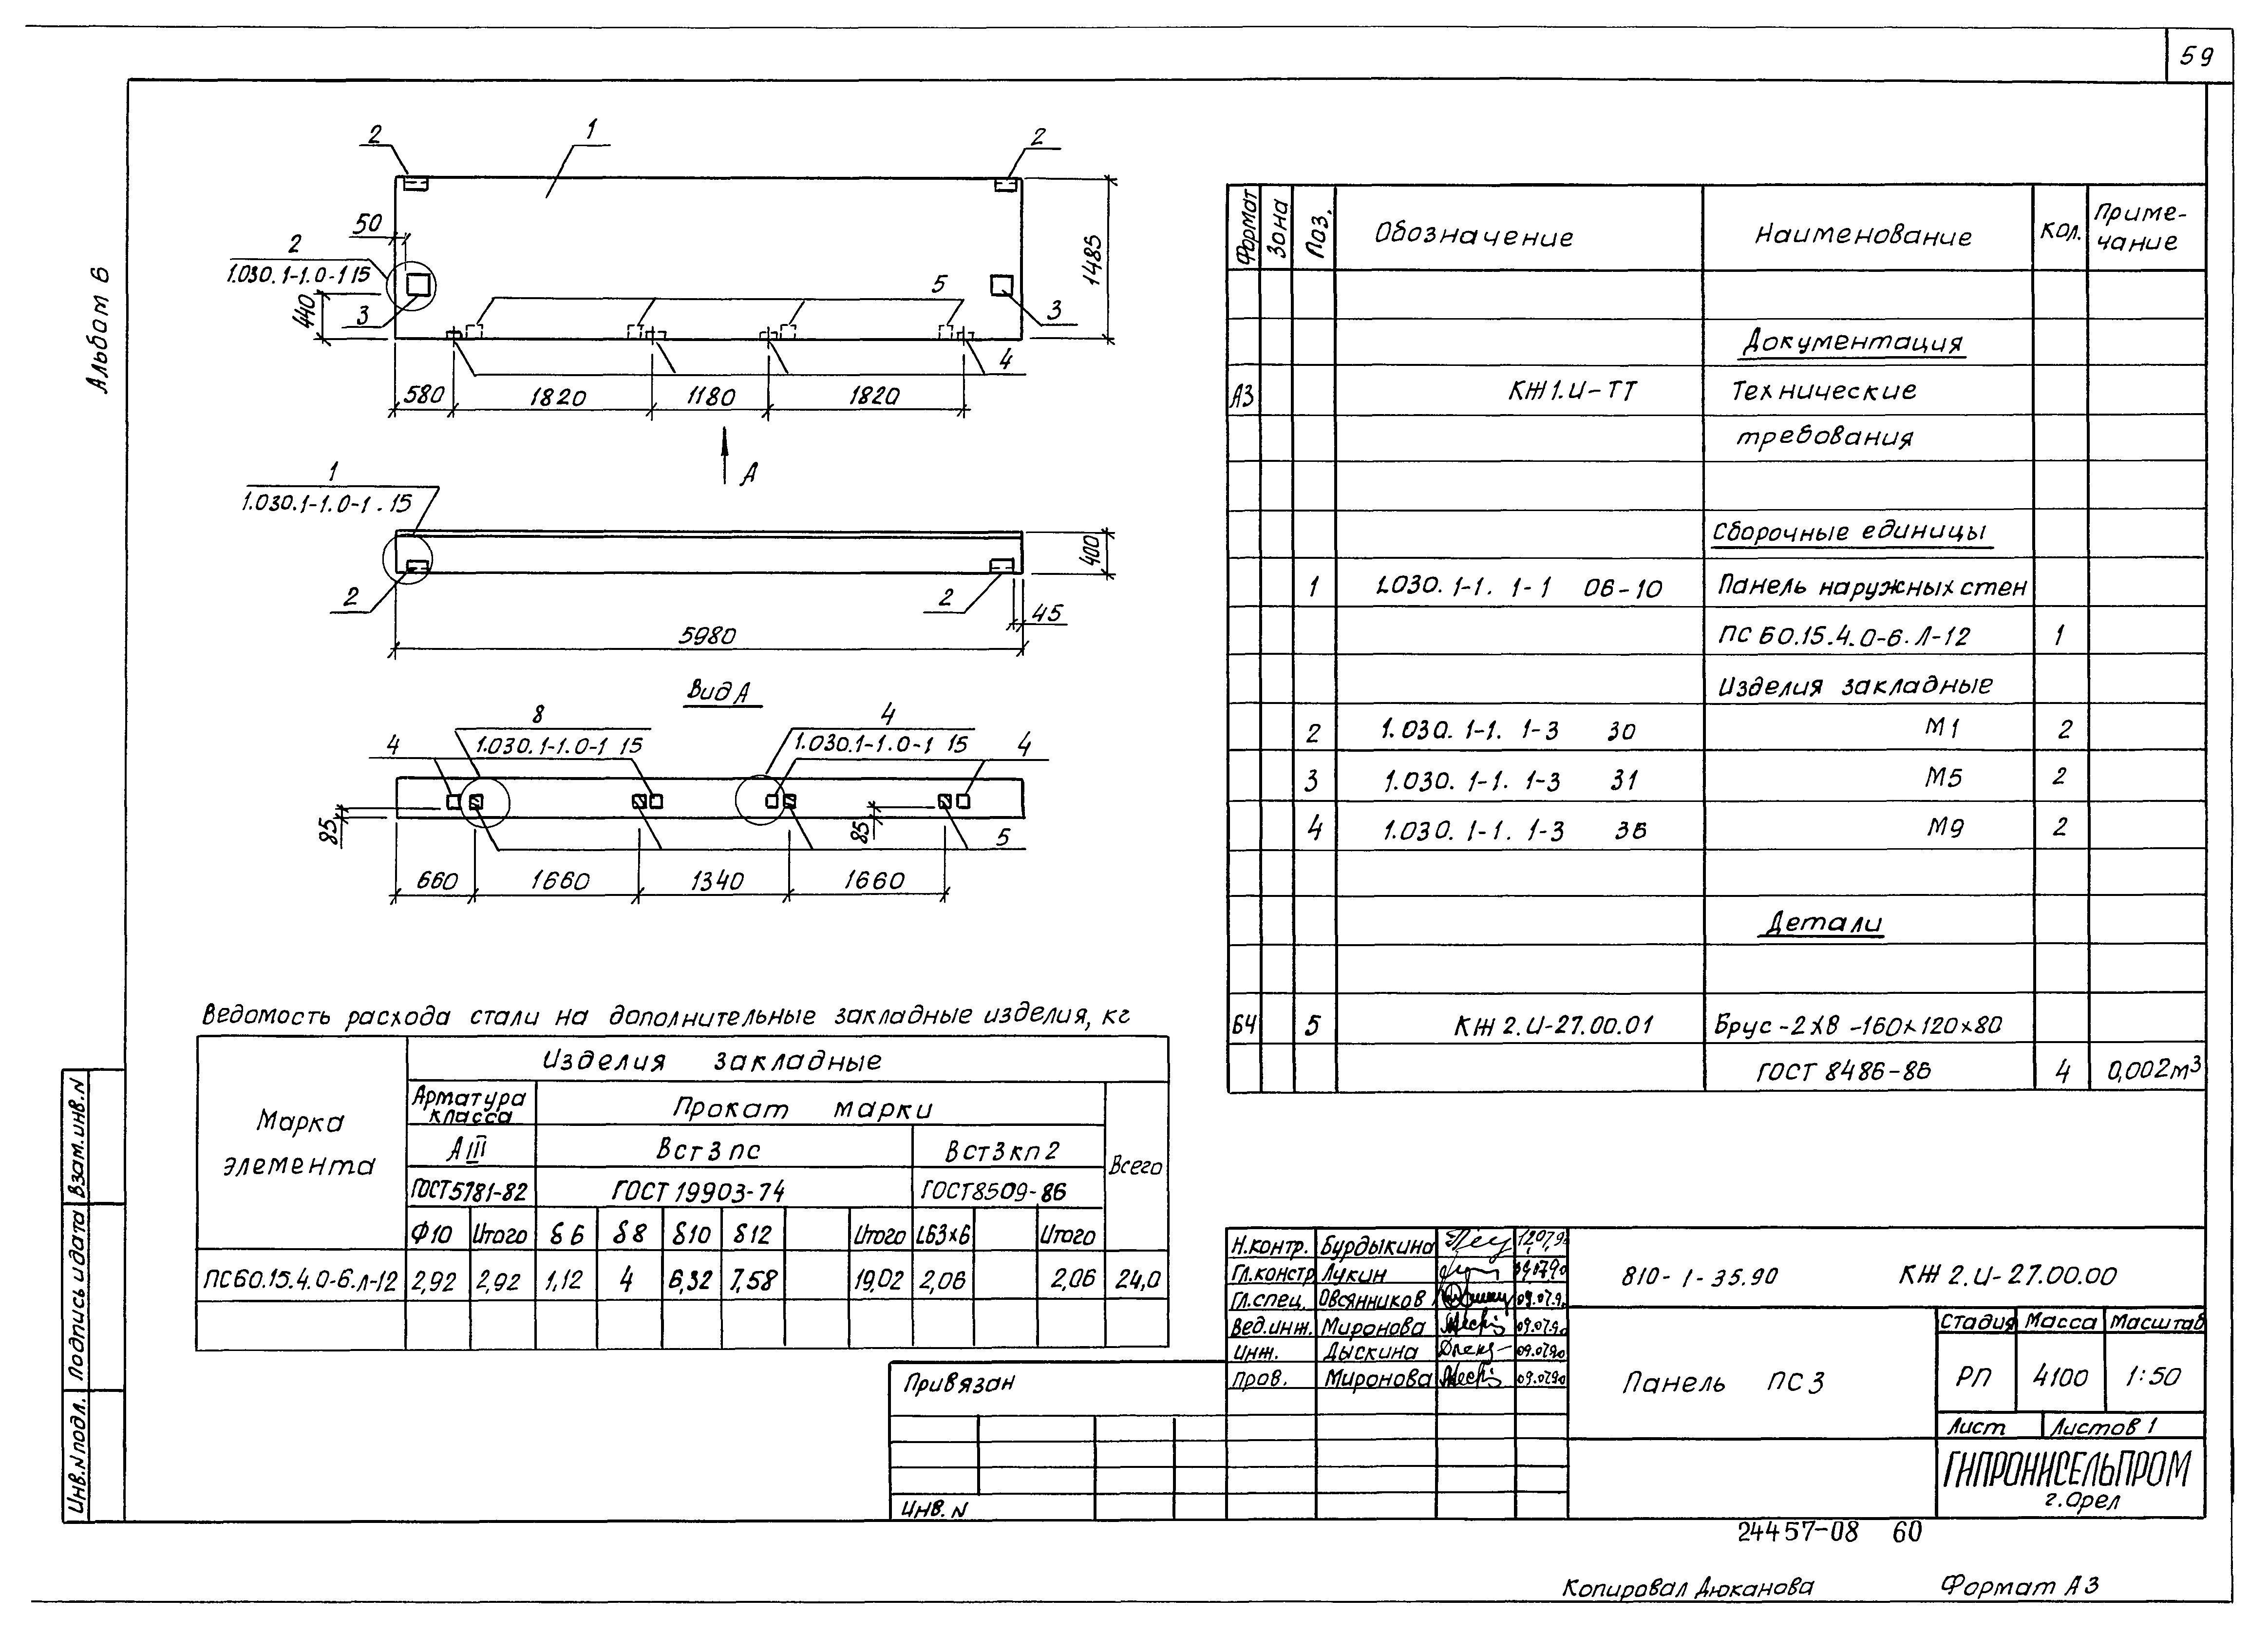 59
Альбом 6
2
1
2
50
2
1.030.1-1.0-1 15
440
3
5
3
1485
4
580
1820
1180
1820
А
1
1.030.1-1.0-1. 15
400
2
2
45
5980
Вид А
8
1.030.1-1.0-1 15
4
1.030.1-1.0-1 15
4
4
85
85
5
660
1660
1340
1660
Формат
Зона
Поз.
Обозначение
Наименование
Кол.
Приме-
чание
Документация
А3
КЖ1.И-ТТ
Технические
требования
Сборочные единицы
1
1.030.1-1. 1-1 06-10
Панель наружных стен
ПС 60.15.4.0-6.Л-12
1
Изделия закладные
2
1.030.1-1. 1-3 30
М1
2
3
1.030.1-1. 1-3 31
М5
2
4
1.030.1-1. 1-3 36
М9
2
Детали
БЧ
5
КЖ2.И-27.00.01
Брус-2ХВ-160×120×80
ГОСТ 8486-86
4
0,002м³
Ведомость расхода стали на дополнительные закладные изделия, кг
Марка
элемента
Изделия закладные
Арматура
класса
Прокат марки
Всего
АIII
Вст3пс
Вст3кп2
ГОСТ5781-82
ГОСТ 19903-74
ГОСТ8509-86
Ф10
Итого
δ6
δ8
δ10
δ12
Итого
L63×6
Итого
ПС60.15.4.0-6.Л-12
2,92
2,92
1,12
4
6,32
7,58
19,02
2,06
2,06
24,0
Взам.инв.N
Подпись и дата
Инв.N подл.
Привязан
Инв. N
Н.контр. Бурдыкина 12.07.90
Гл.констр Лукин
Гл.спец. Овсянников 09.07.9
Вед.инж. Миронова 09.07.90
Инж. Дыскина 09.07.90
Пров. Миронова 09.07.90
810-1-35.90
КЖ2.И-27.00.00
Панель ПС3
Стадия
Масса
Масштаб
РП
4100
1:50
Лист
Листов 1
ГИПРОНИСЕЛЬПРОМ
г.Орел
24457-08 60
Копировал Дюканова
Формат А3